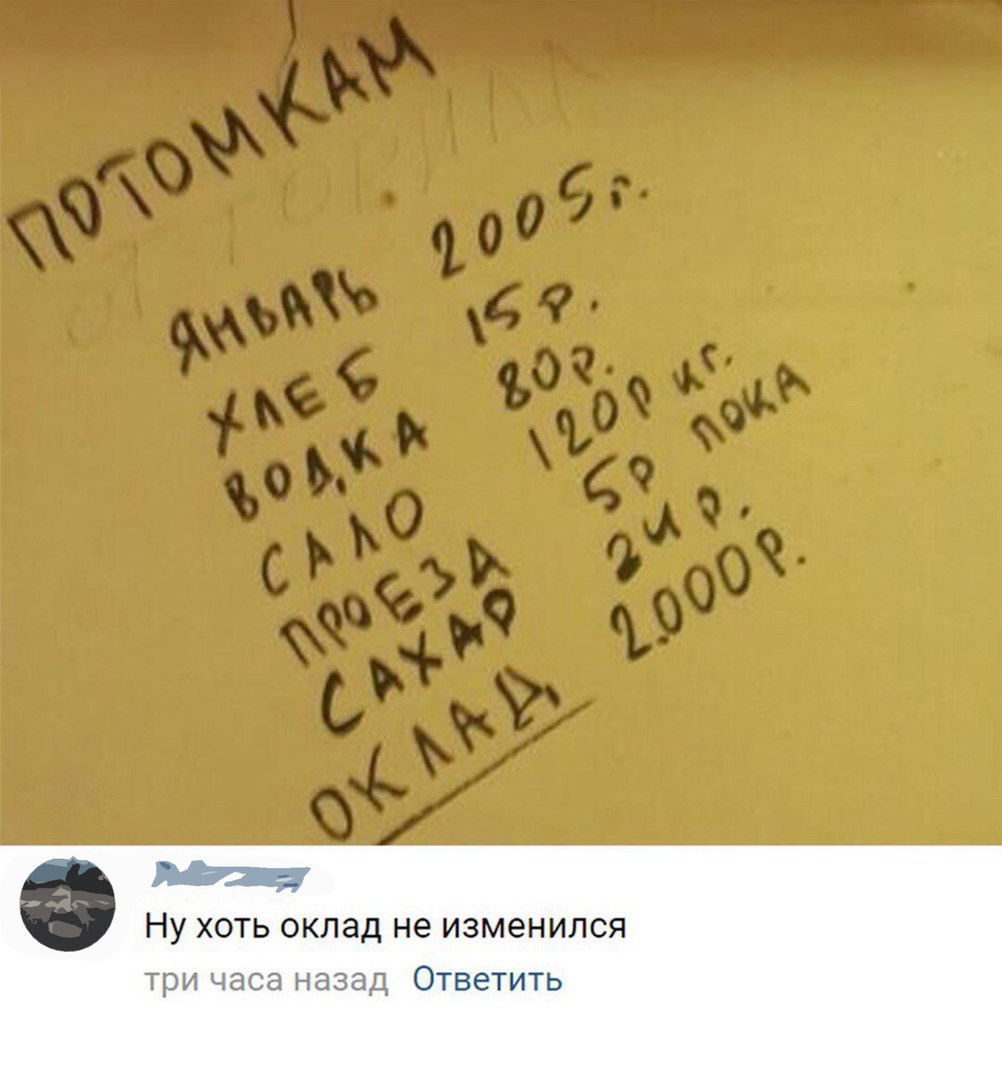 ПОТОМКАМ
ЯНВАРЬ 2005г.
ХЛЕБ 15р.
ВОДКА 80р.
САЛО 120р кг.
ПРОЕЗД 5р ПОКА
САХАР 24р.
ОКЛАД 2.000р.
Ну хоть оклад не изменился
три часа назад Ответить